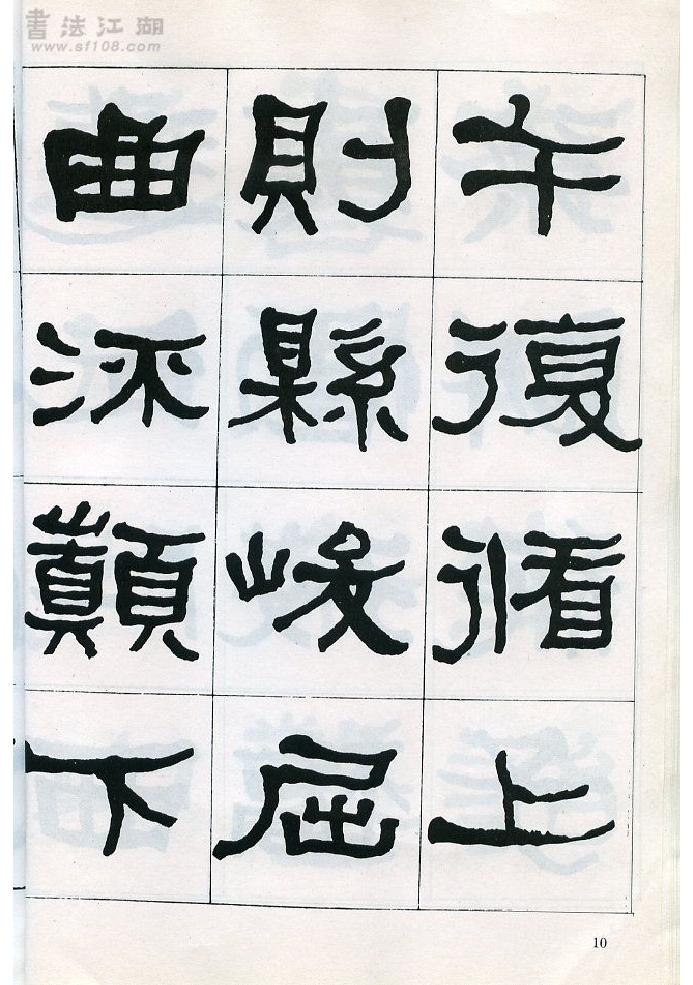 書法江湖
www.sf108.com
午復循上
則縣峻屈
曲流巔下
10